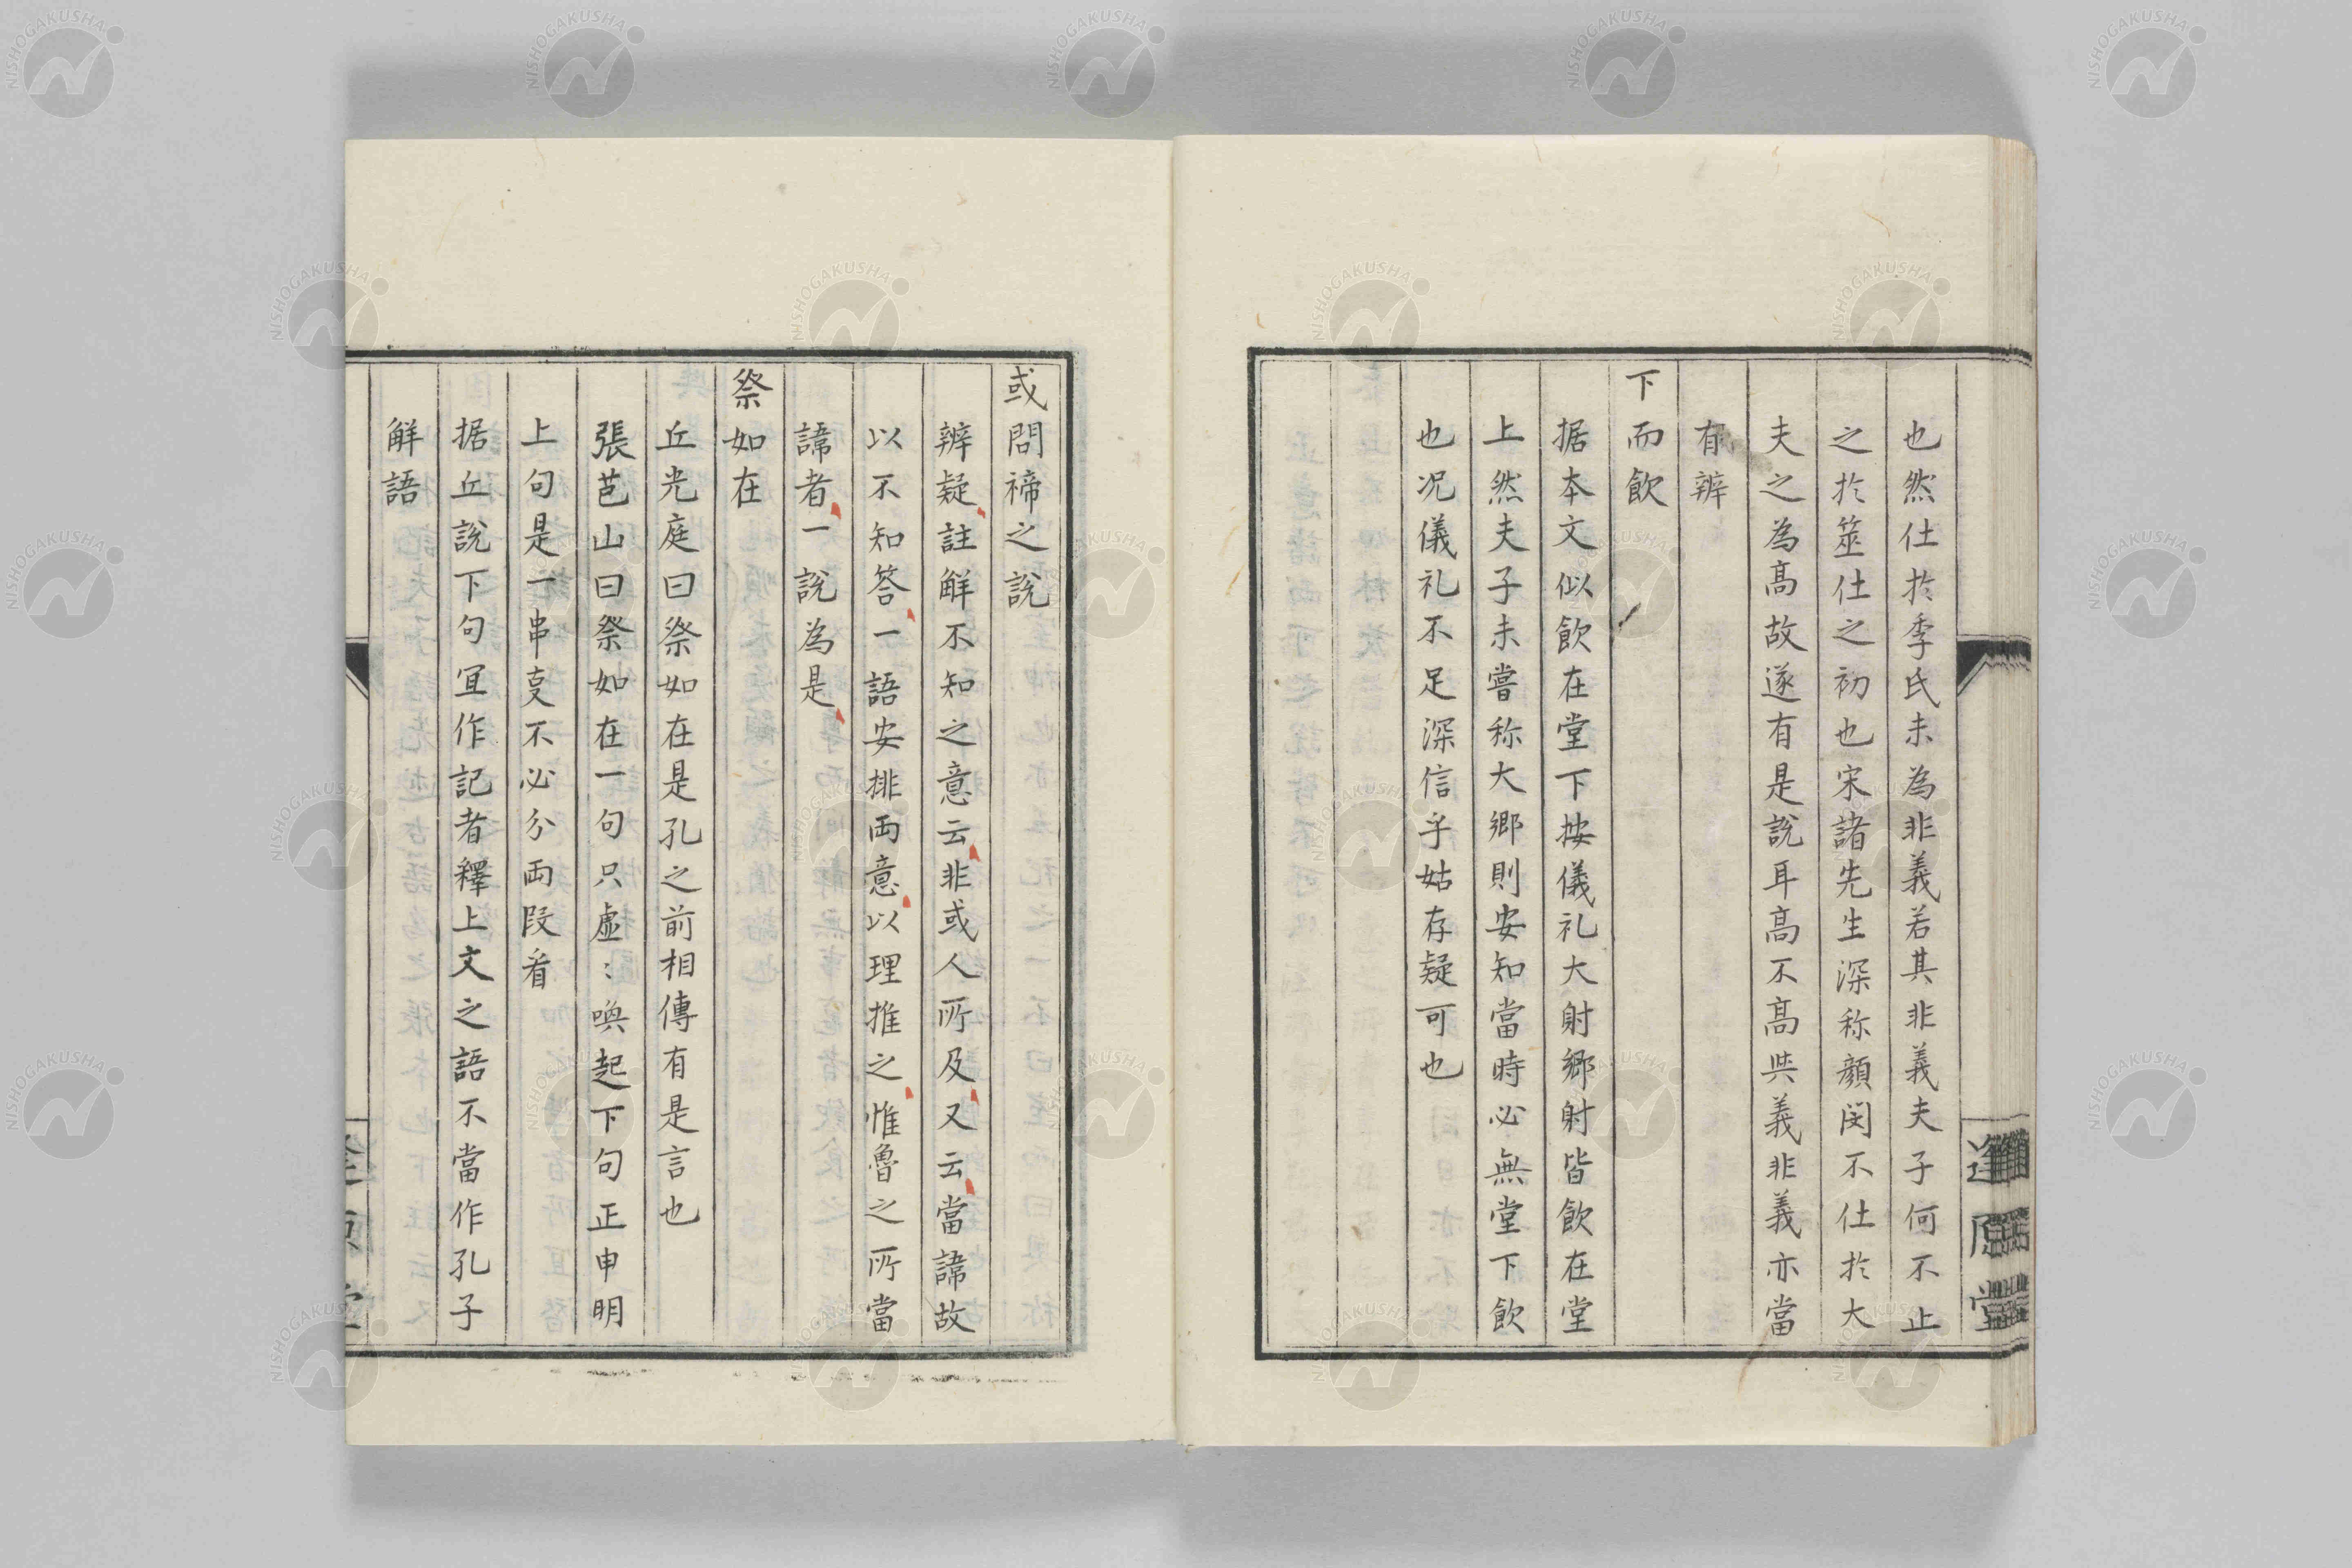 也然仕於季氏未為非義若其非義夫子何不止
之於筮仕之初也宋諸先生深称顔閔不仕於大
夫之為髙故遂有是說耳髙不髙與義非義亦當
有辨
下而飲
据本文似飲在堂下按儀礼大射鄉射皆飲在堂
上然夫子未嘗称大鄉則安知當時必無堂下飲
也况儀礼不足深信乎姑存疑可也
或問禘之說
辨疑註解不知之意云非或人所及又云當諱故
以不知答一語安排両意以理推之惟魯之所當
諱者一說為是
祭如在
丘光庭曰祭如在是孔之前相傳有是言也
張芑山曰祭如在一句只虛〻喚起下句正申明
上句是一串叓不必分両段看
据丘說下句冝作記者釋上文之語不當作孔子
解語
逢原堂
NISHOGAKUSHA